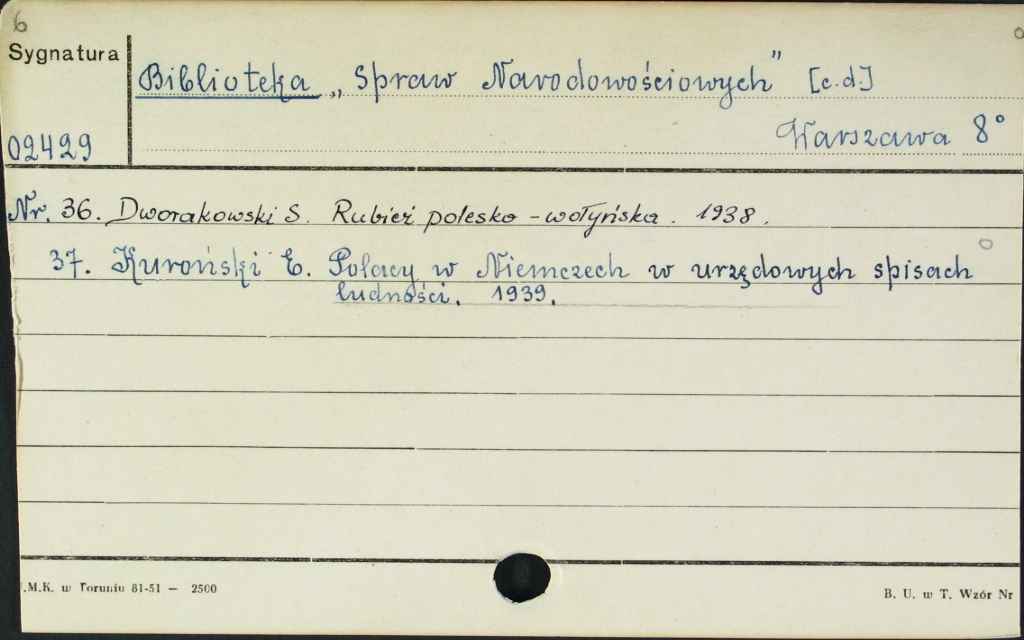 6
Sygnatura
Biblioteka „Spraw Narodowościowych” [c.d.]
02429
Warszawa 8°
Nr. 36. Dworakowski S. Rubież polesko-wołyńska. 1938.
37. Kuroński E. Polacy w Niemczech w urzędowych spisach
ludności. 1939.
.M.K. w Toruniu 81-51 — 2500
B. U. w T. Wzór Nr